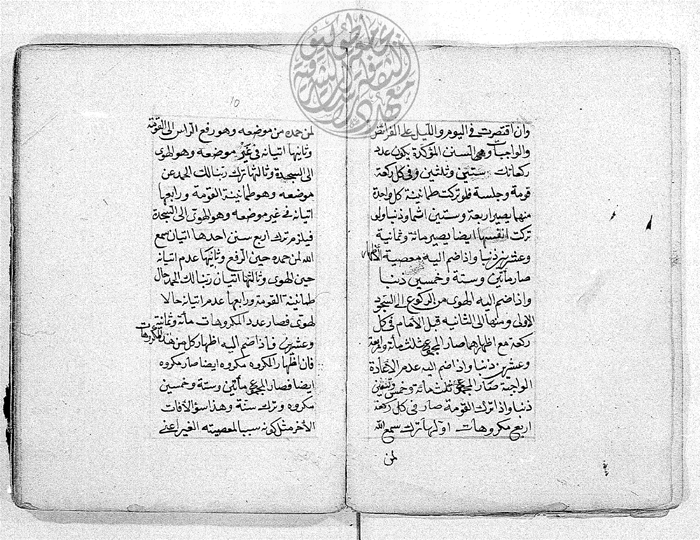 وان اقتصرت في اليوم والليل على الفرائض
والواجبات وهي السنن المؤكدة يكون عدد
ركعاتك ستين وثلثين وفي كل ركعة
قومة وجلسة فلو تركت طمانينة كل واحدة
منها يصير اربعة وستين اثما وذنبا ولو
تركت انفسها ايضا يصير مائة وثمانية
وعشرين ذنبا واذا ضم اليه معصية الاظهار
صار مأتين وستة وخمسين ذنبا
واذا ضم اليه الهوى من الركوع الى السجود
الاولى ومنها الى الثانيه قبل الامام في كل
ركعة مع اظهارهما صار المجموع ثلث مأة واربعة
وعشرين ذنبا واذا ضم اليه عدم الاعادة
الواجبة صار المجموع ثلث مائة وخمس وثمنين
ذنبا واذا ترك القومة صار في كل ركعة
اربع مكروهات اولها ترك سمع الله
لمن
لمن حمده من موضعه وهو رفع الراس الى القومة
وثانيها اتيانه في غير موضعه وهو الهوى
الى السجدة وثالثها ترك ربنا لك الحمد عن
موضعه وهو طمانينة القومة ورابعها
اتيانه في غير موضعه وهو الهوى الى السجدة
فيلزم ترك اربع سنن احدها اتيان سمع
الله لمن حمده حين الرفع وثانيها عدم اتيانه
حين الهوى وثالثها اتيان ربنا لك الحمد حال
طمانينة القومة ورابعها عدم اتيانه حالا
لهوى فصار عدد المكروهات مأة وثمانية
وعشرين فاذا ضم اليه اظهار كل من هذه المكروهات
فان اظهار المكروه مكروه ايضا صار مكروه
ايضا فصار المجموع مأتين وستة وخمسين
مكروه وترك سنة وهذا سوا الافات
الاخر مثل كونه سببا لمعصيته الغير اعني